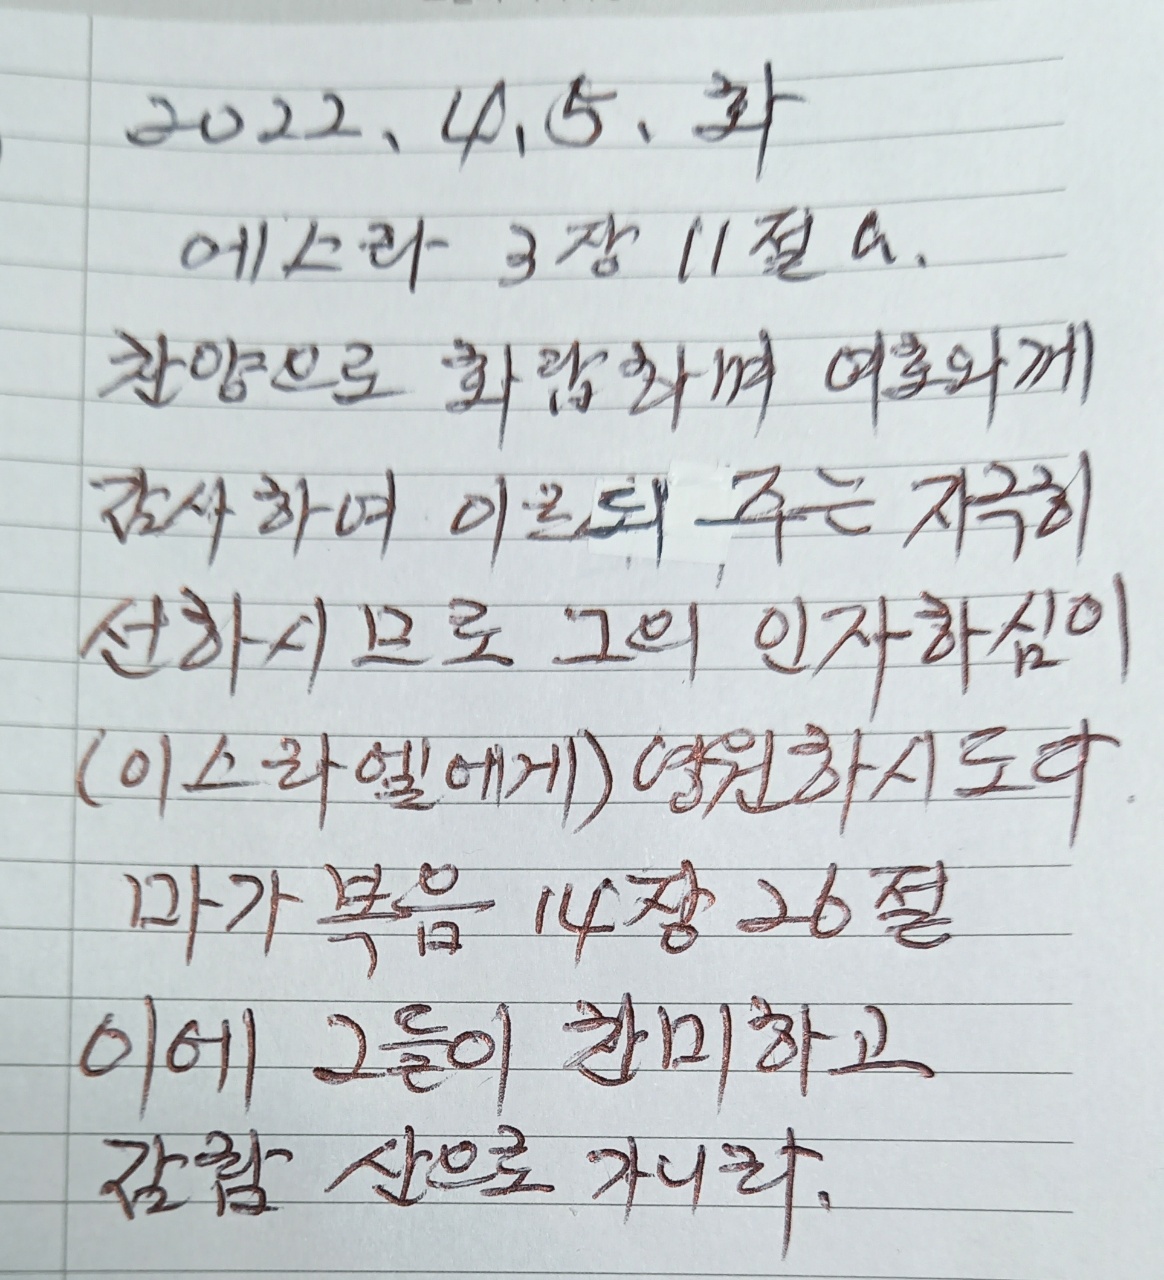 2022. 4. 5. 화
에스라 3장 11절 a.
찬양으로 화답하며 여호와께
감사하여 이르되 주는 지극히
선하시므로 그의 인자하심이
(이스라엘에게) 영원하시도다.
마가복음 14장 26절
이에 그들이 찬미하고
감람 산으로 가니라.